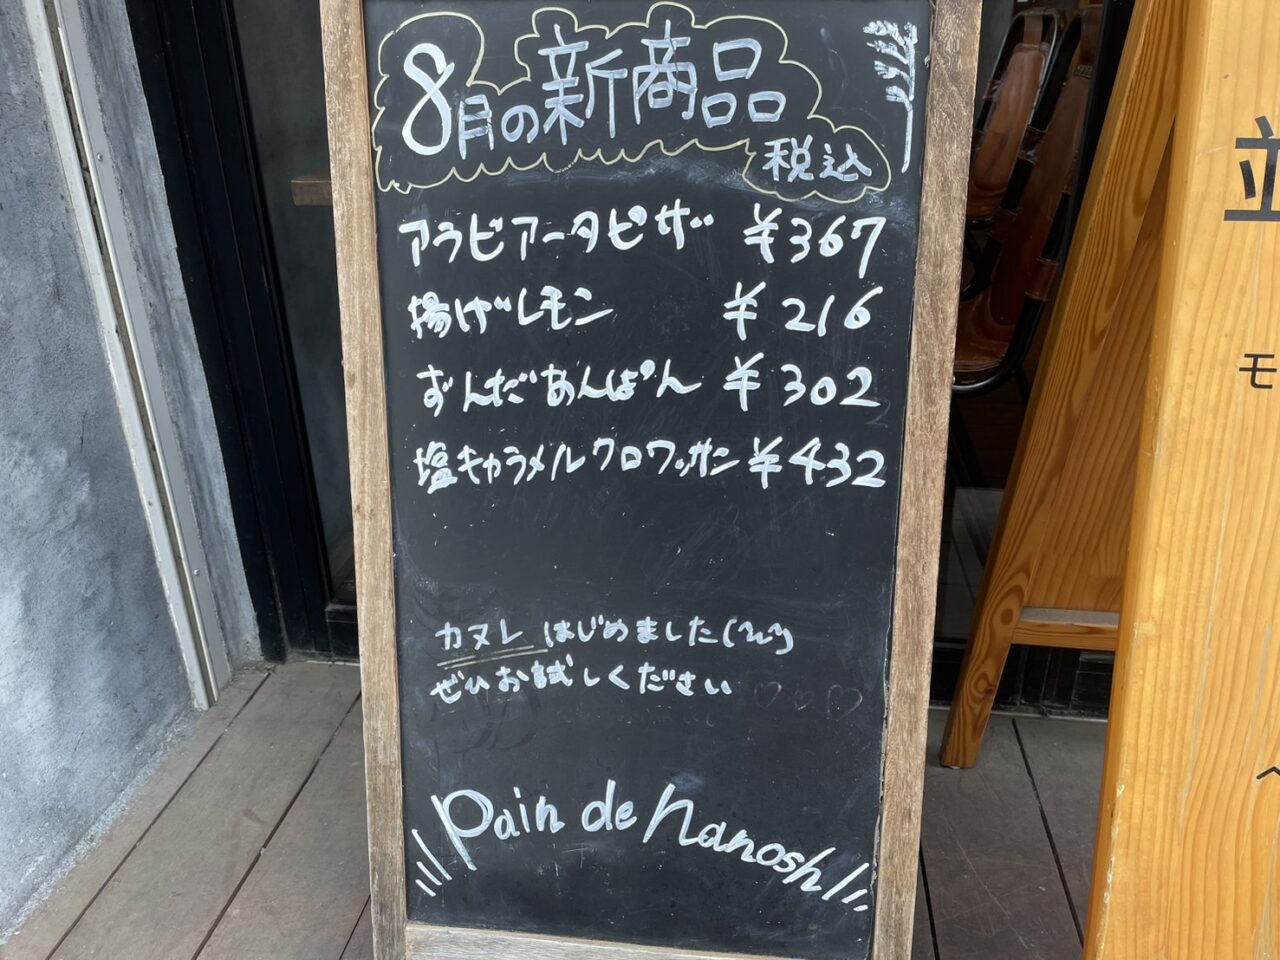 8月の新商品
税込
アラビアータピザ ¥367
揚げレモン ¥216
ずんだあんぱん ¥302
塩キャラメルクロワッサン ¥432
カヌレ はじめました(^^)
ぜひお試しください ♡♡♡
Pain de nanosh
並
モ